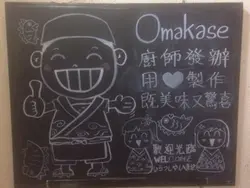 Omakase
廚師發辦
用❤製作
既美味又驚喜
歡迎光臨
WELCOME